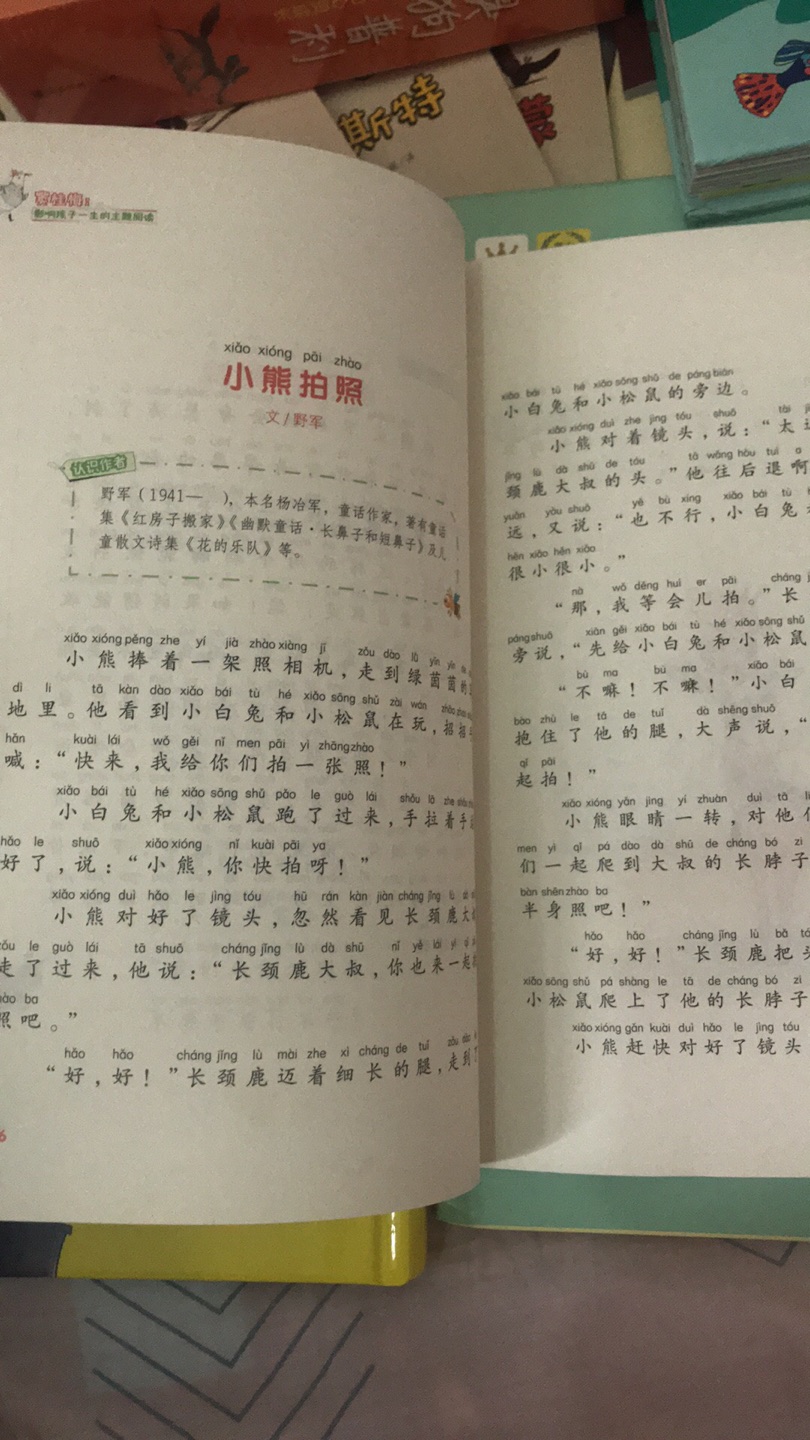 狗普利
特斯
窦桂梅
影响孩子一生的主题阅读
xiǎo xióng pāi zhào
小熊拍照
文/野军
认识作者
野军(1941— ),本名杨冶军,童话作家,著有童话
集《红房子搬家》《幽默童话·长鼻子和短鼻子》及儿
童散文诗集《花的乐队》等。
xiǎo xióng pěng zhe yí jià zhào xiàng jī zǒu dào lǜ yīn yīn
小熊捧着一架照相机,走到绿茵茵的
dì li tā kàn dào xiǎo bái tù hé xiǎo sōng shǔ zài wán
地里。他看到小白兔和小松鼠在玩,招招
hǎn kuài lái wǒ gěi nǐ men pāi yì zhāng zhào
喊:“快来,我给你们拍一张照!”
xiǎo bái tù hé xiǎo sōng shǔ pǎo le guò lái shǒu lā zhe
小白兔和小松鼠跑了过来,手拉着手
hǎo le shuō xiǎo xióng nǐ kuài pāi ya
好了,说:“小熊,你快拍呀!”
xiǎo xióng duì hǎo le jìng tóu hū rán kàn jiàn cháng jǐng lù
小熊对好了镜头,忽然看见长颈鹿大
zǒu le guò lái tā shuō cháng jǐng lù dà shū nǐ yě lái yì
走了过来,他说:“长颈鹿大叔,你也来一起
zhào ba
照吧。”
hǎo hǎo cháng jǐng lù mài zhe xì cháng de tuǐ zǒu dào
“好,好!”长颈鹿迈着细长的腿,走到
6
xiǎo bái tù hé xiǎo sōng shǔ de páng biān
小白兔和小松鼠的旁边。
xiǎo xióng duì zhe jìng tóu shuō tài
小熊对着镜头,说:“太
jǐng lù dà shū de tóu tā wǎng hòu tuì a
颈鹿大叔的头。”他往后退啊
yuǎn yòu shuō yě bù xíng xiǎo bái tù
远,又说:“也不行,小白兔
hěn xiǎo hěn xiǎo
很小很小。”
nà wǒ děng huì er pāi cháng
“那,我等会儿拍。”长
páng shuō xiān gěi xiǎo bái tù hé xiǎo sōng shǔ
旁说,“先给小白兔和小松鼠
bù ma bù ma xiǎo bái
“不嘛!不嘛!”小白
bào zhù le tā de tuǐ dà shēng shuō
抱住了他的腿,大声说,“
qǐ pāi
起拍!”
xiǎo xióng yǎn jing yí zhuàn duì tā
小熊眼睛一转,对他们
men yì qǐ pá dào dà shū de cháng bó zi
们一起爬到大叔的长脖子
bàn shēn zhào ba
半身照吧!”
hǎo hǎo cháng jǐng lù bǎ
“好,好!”长颈鹿把
xiǎo sōng shǔ pá shàng le tā de cháng bó zi
小松鼠爬上了他的长脖子
xiǎo xióng gǎn kuài duì hǎo le jìng tóu
小熊赶快对好了镜头